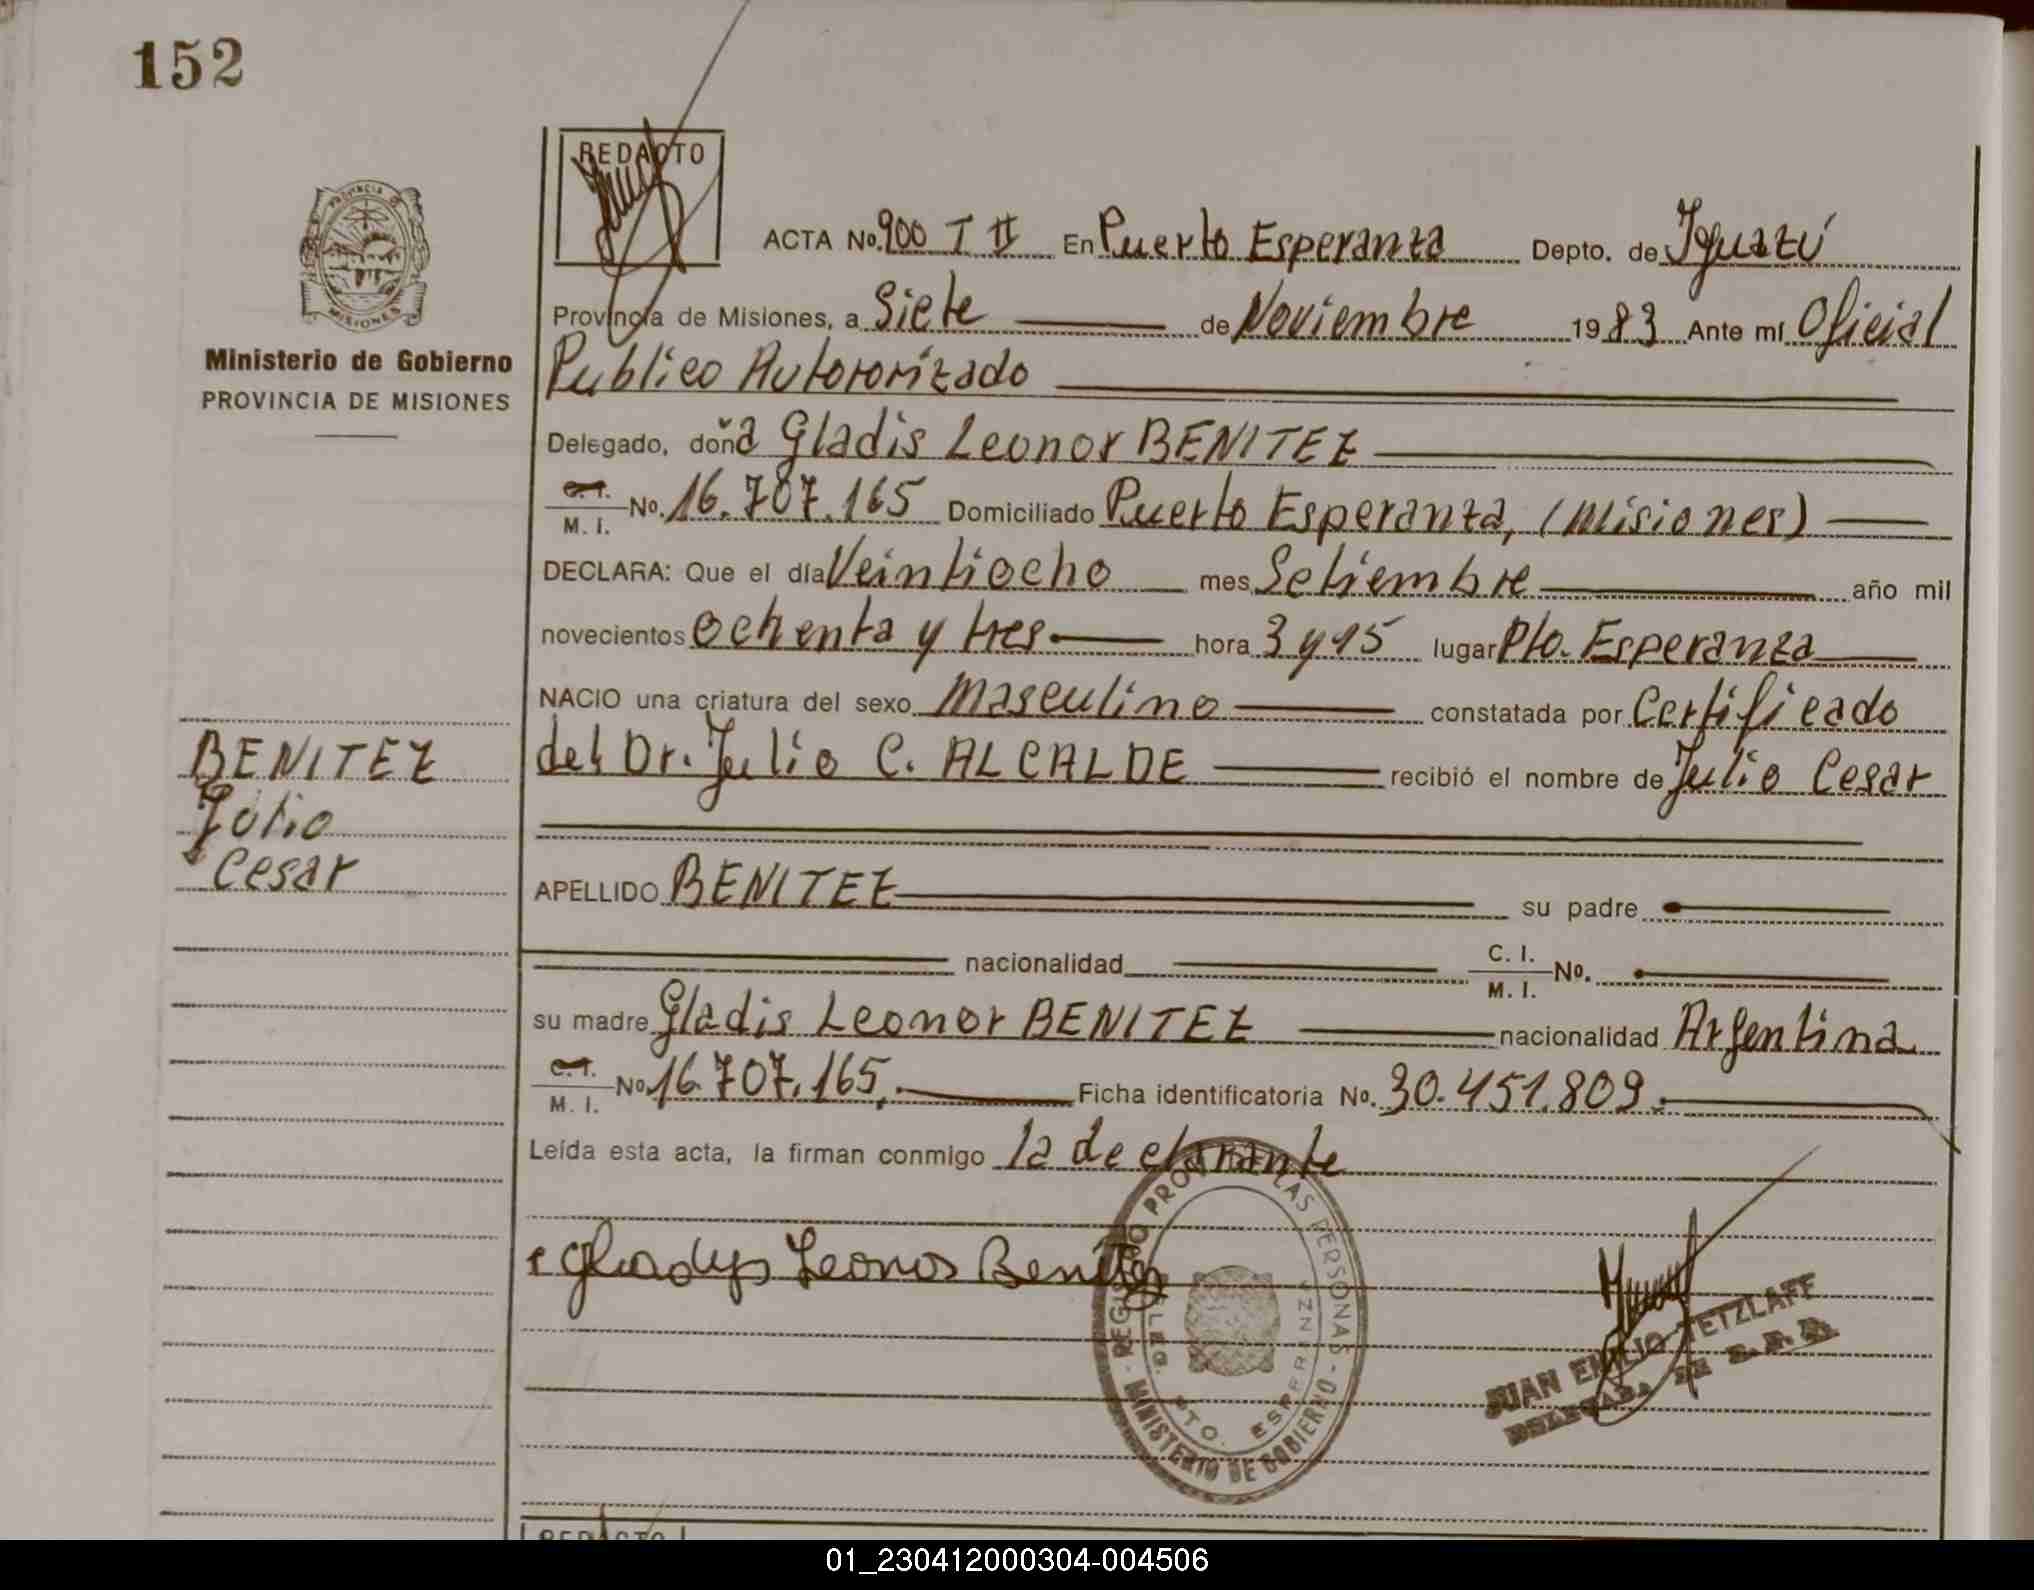 152
REDACTO
ACTA No. 900 I II En Puerto Esperanza Depto. de Iguazú
Provincia de Misiones, a Siete de Noviembre 1983 Ante mí Oficial
Publico Autororizado
Delegado, doña Gladis Leonor BENITEZ
C. I. M. I. No. 16.707.165 Domiciliado Puerto Esperanza, (Misiones)
DECLARA: Que el día Veintiocho mes Setiembre año mil
novecientos ochenta y tres hora 3 y 15 lugar Pto. Esperanza
NACIO una criatura del sexo Masculino constatada por Certificado
del Dr. Julio C. ALCALDE recibió el nombre de Julio Cesar
APELLIDO BENITEZ su padre
nacionalidad C. I. M. I. No.
su madre Gladis Leonor BENITEZ nacionalidad Argentina
C. I. M. I. No. 16.707.165. Ficha identificatoria No. 30.451.809.
Leída esta acta, la firman conmigo la declarante
Gladys Leonor Benitez
PROVINCIA DE
MISIONES
Ministerio de Gobierno
PROVINCIA DE MISIONES
BENITEZ
Julio
Cesar
REGISTRO PROV. DE LAS PERSONAS
DELEG. PTO. ESPERANZA
MINISTERIO DE GOBIERNO
JUAN EMILIO TETZLAFF
REDACTO
01_230412000304-004506